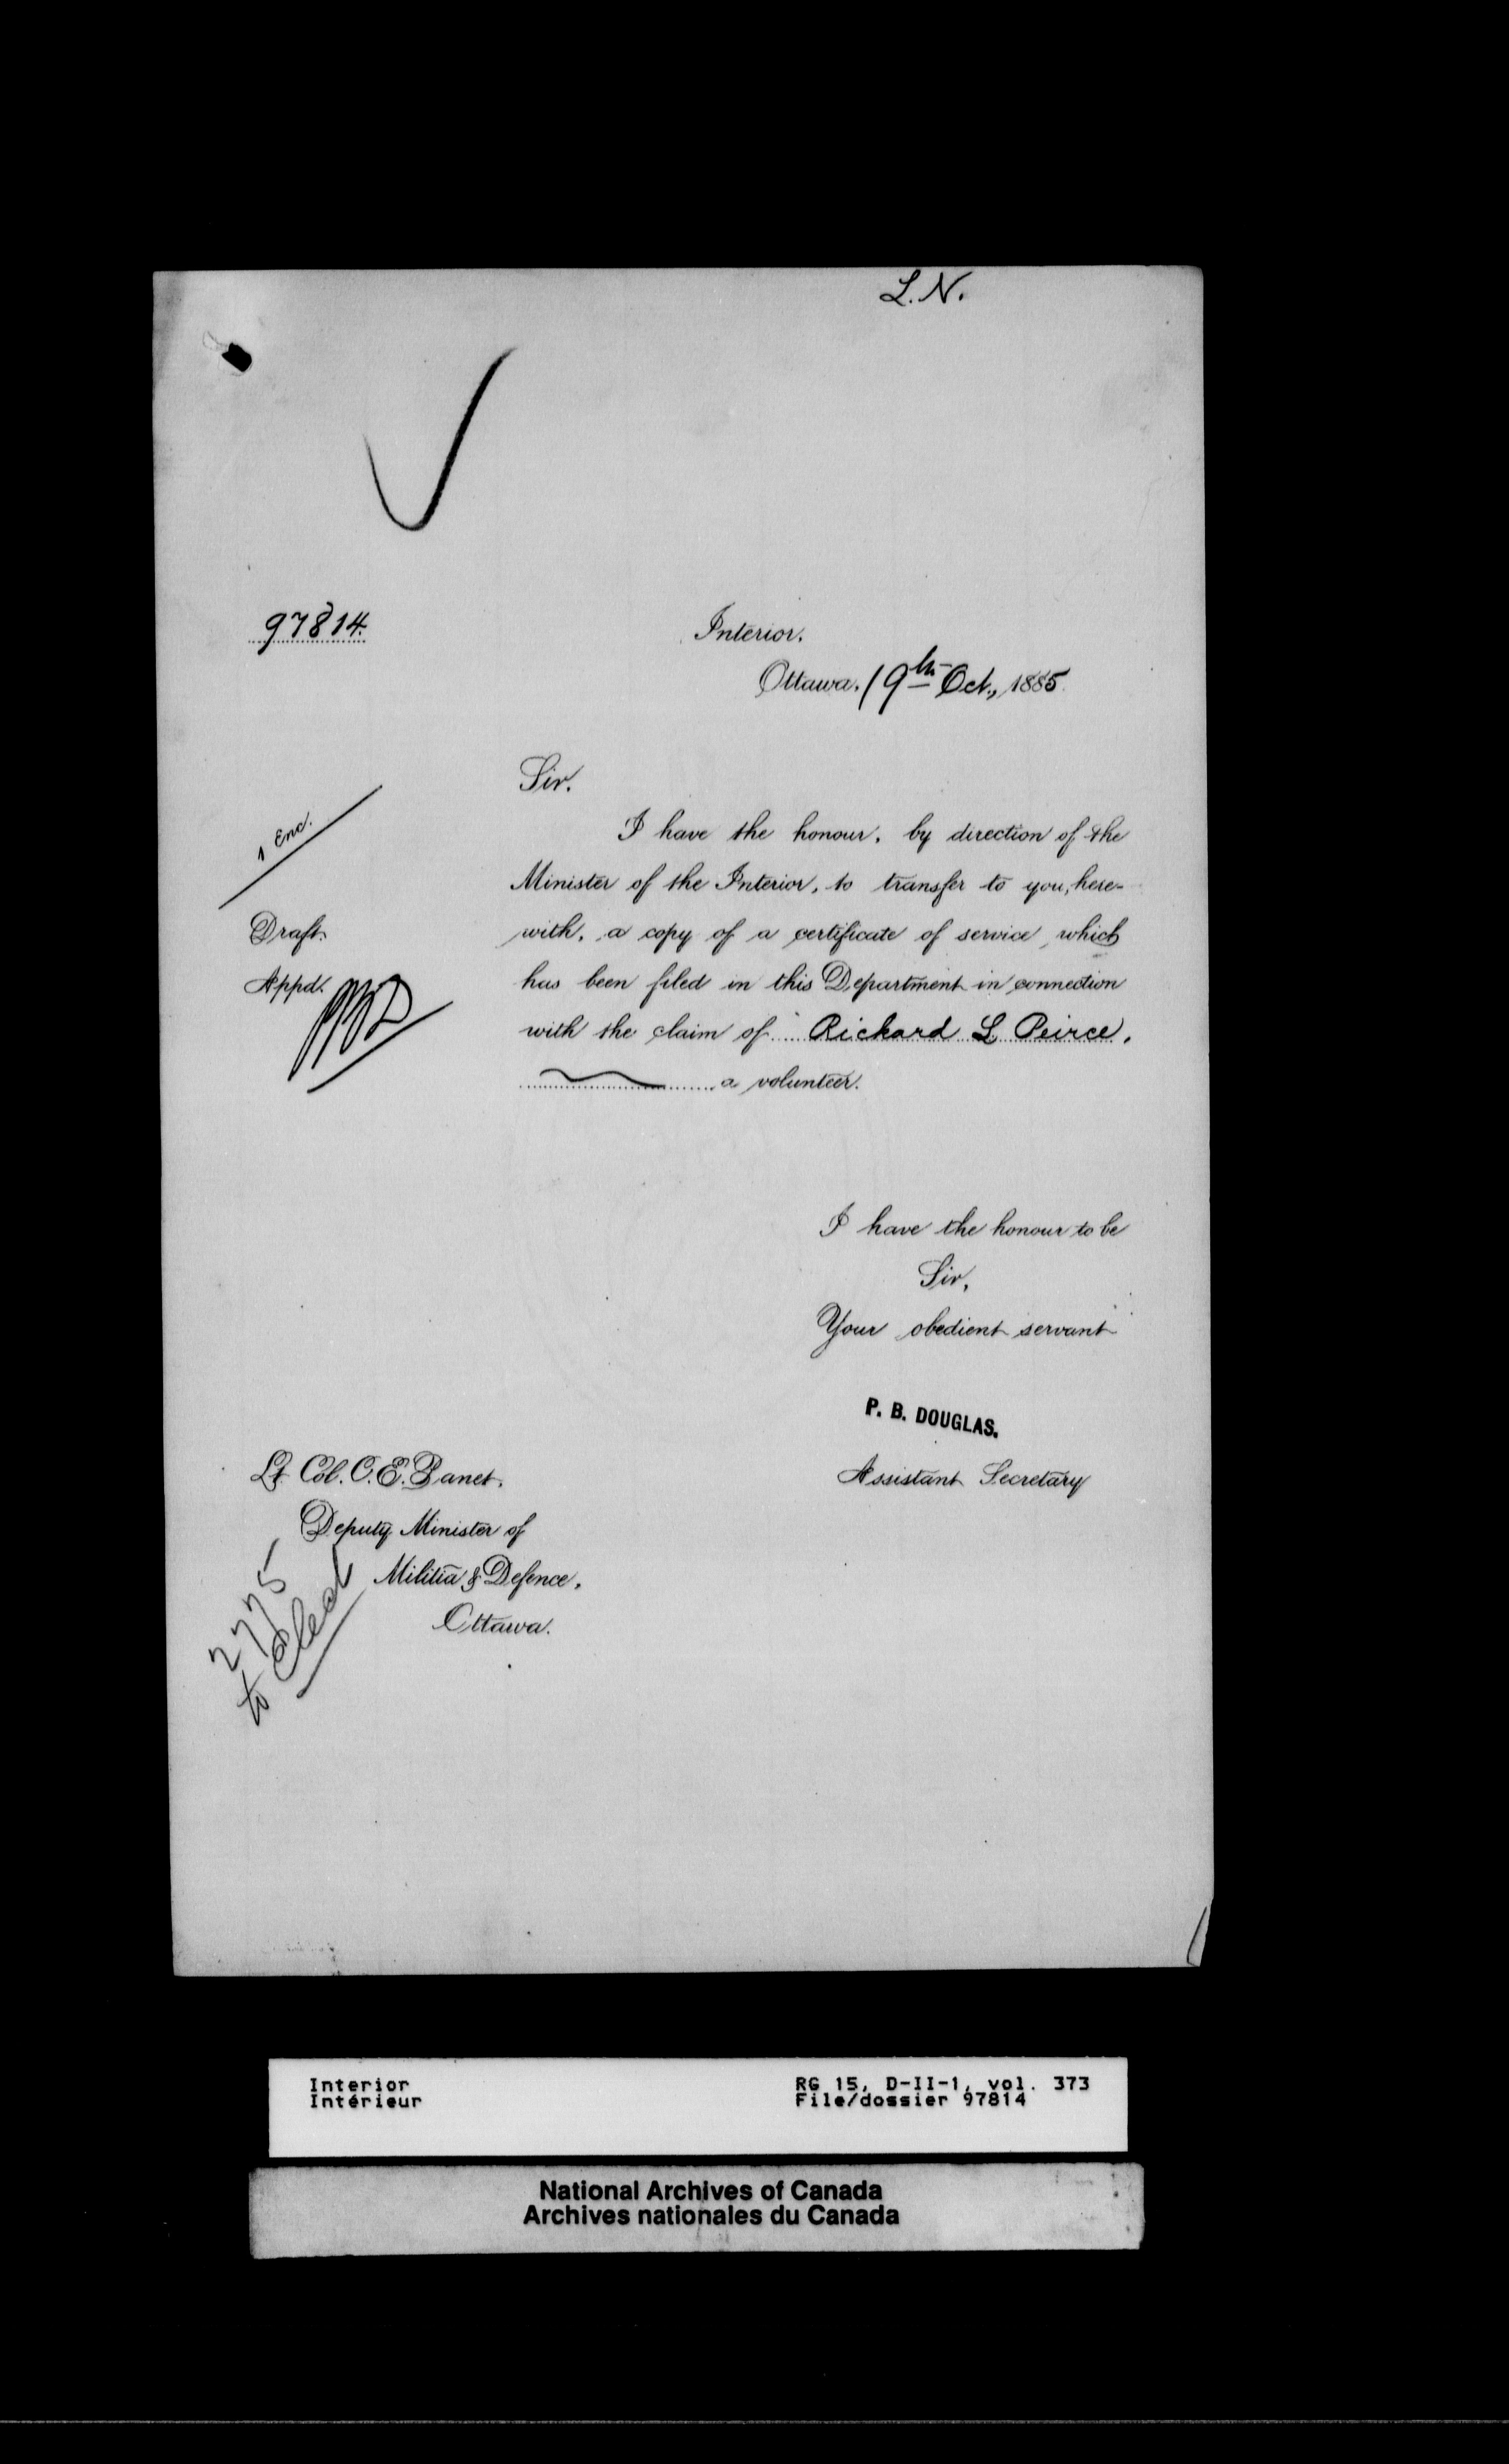 L. N.
97814.
Interior.
Ottawa, 19th Oct., 1885.
Sir.
1 Enc.
I have the honour, by direction of the
Minister of the Interior, to transfer to you, here-
with, a copy of a certificate of service, which
has been filed in this Department in connection
with the claim of Richard L Peirce,
a volunteer.
Draft.
Appd.
I have the honour to be
Sir,
Your obedient servant
P. B. DOUGLAS.
Assistant Secretary
Lt. Col. C. E. Panet.
Deputy Minister of
Militia & Defence,
Ottawa.
2775
to
Interior
Intérieur
RG 15, D-II-1, vol. 373
File/dossier 97814
National Archives of Canada
Archives nationales du Canada